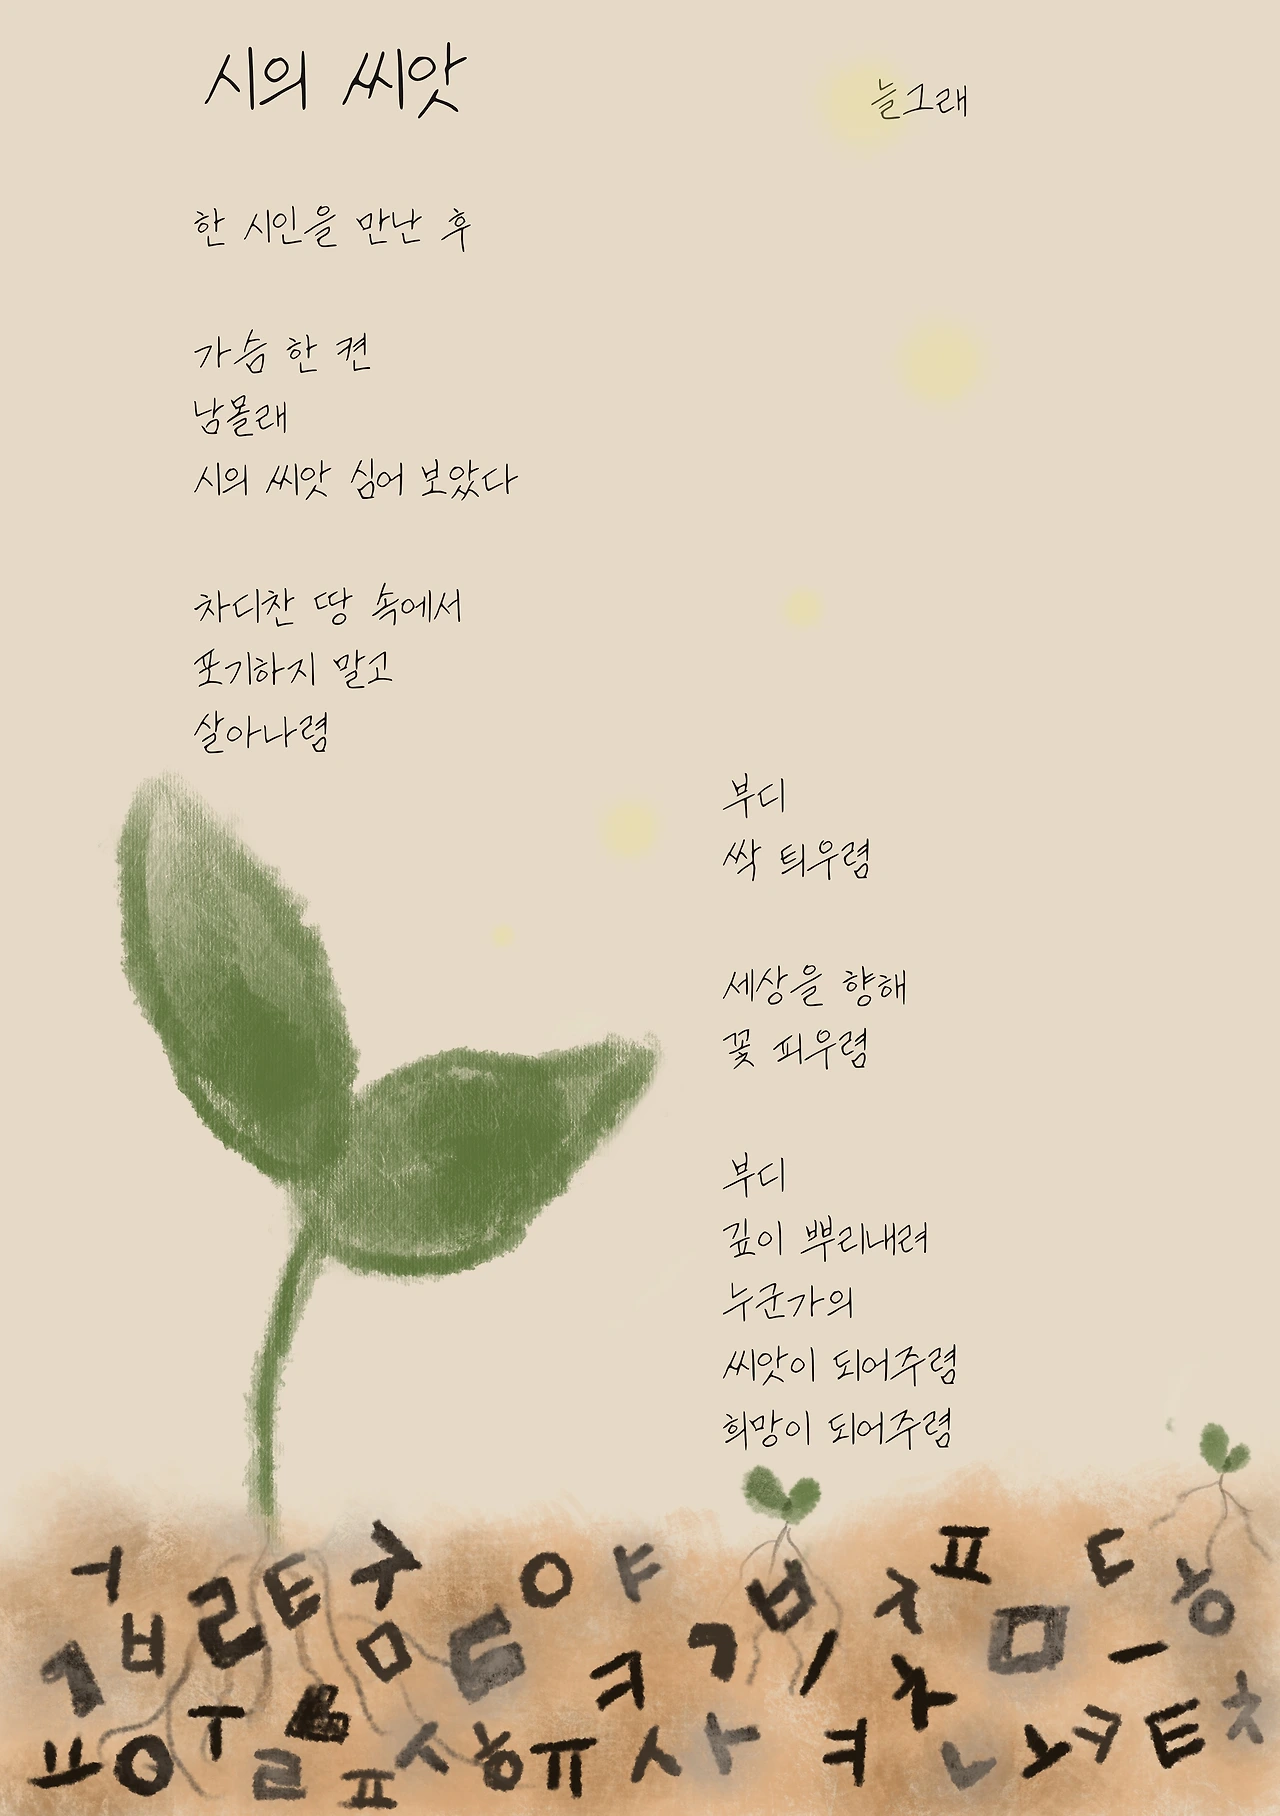 시의 씨앗
늘그래
한 시인을 만난 후
가슴 한 켠
남몰래
시의 씨앗 심어 보았다
차디찬 땅 속에서
포기하지 말고
살아나렴
부디
싹 틔우렴
세상을 향해
꽃 피우렴
부디
깊이 뿌리내려
누군가의
씨앗이 되어주렴
희망이 되어주렴